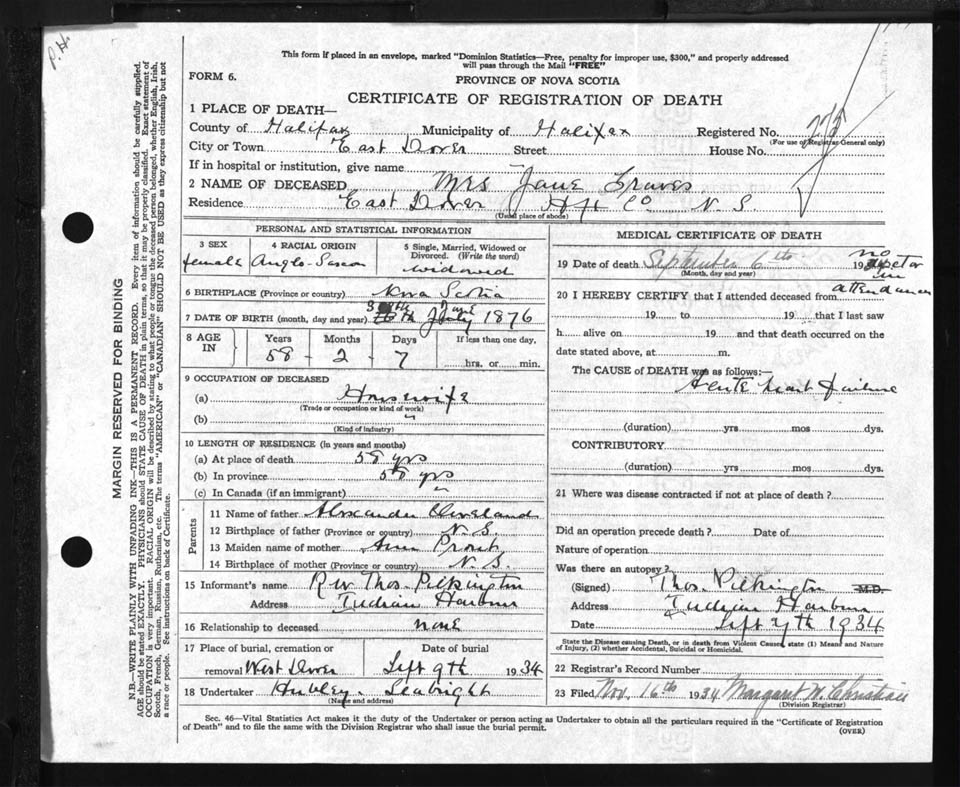 P. H.
This form if placed in an envelope, marked "Dominion Statistics—Free, penalty for improper use, $300," and properly addressed
will pass through the Mail "FREE"
FORM 6.
PROVINCE OF NOVA SCOTIA
CERTIFICATE OF REGISTRATION OF DEATH
1 PLACE OF DEATH—
County of Halifax Municipality of Halifax Registered No.
(For use of Registrar General only)
City or Town East Dover Street House No.
If in hospital or institution, give name
2 NAME OF DECEASED Mrs Jane Graves
Residence East Dover Hfx Co N. S.
(Usual place of abode)
PERSONAL AND STATISTICAL INFORMATION
3 SEX
female
4 RACIAL ORIGIN
Anglo-Saxon
5 Single, Married, Widowed or
Divorced. (Write the word)
widowed
6 BIRTHPLACE (Province or country) Nova Scotia
7 DATE OF BIRTH (month, day and year) 30th June 1876
8 AGE
IN
Years Months Days If less than one day,
58 - 2 - 7 hrs. or min.
9 OCCUPATION OF DECEASED
(a) Housewife
(Trade or occupation or kind of work)
(b) "
(Kind of industry)
10 LENGTH OF RESIDENCE (in years and months)
(a) At place of death 58 yrs
(b) In province 58 yrs
(c) In Canada (if an immigrant) "
Parents
11 Name of father Alexander Cleveland
12 Birthplace of father (Province or country) N. S.
13 Maiden name of mother Ann Prout
14 Birthplace of mother (Province or country) N. S.
15 Informant's name Rev. Thos. Pilkington
Address Indian Harbour
16 Relationship to deceased none
17 Place of burial, cremation or Date of burial
removal West Dover Sept 9th 1934
18 Undertaker Hubley - Seabright
(Name and address)
MEDICAL CERTIFICATE OF DEATH
19 Date of death September 6th 19
(Month, day and year)
no
doctor
in
attendance
20 I HEREBY CERTIFY that I attended deceased from
19 to 19 that I last saw
h alive on 19 and that death occurred on the
date stated above, at m.
The CAUSE of DEATH was as follows:—
Acute heart failure
(duration) yrs mos dys.
CONTRIBUTORY
(duration) yrs mos dys.
21 Where was disease contracted if not at place of death?
Did an operation precede death? Date of
Nature of operation
Was there an autopsy?
(Signed) Thos. Pilkington M.D.
Address Indian Harbour
Date Sept 7th 1934
State the Disease causing Death, or in death from Violent Causes, state (1) Means and Nature
of Injury, (2) whether Accidental, Suicidal or Homicidal.
22 Registrar's Record Number
23 Filed Nov. 16th 1934 Margaret M. Christian
(Division Registrar)
Sec. 46—Vital Statistics Act makes it the duty of the Undertaker or person acting as Undertaker to obtain all the particulars required in the "Certificate of Registration
of Death" and to file the same with the Division Registrar who shall issue the burial permit.
(OVER)
MARGIN RESERVED FOR BINDING
N.B.—WRITE PLAINLY WITH UNFADING INK—THIS IS A PERMANENT RECORD. Every item of information should be carefully supplied.
AGE should be stated EXACTLY. PHYSICIANS should STATE CAUSE OF DEATH in plain terms, so that it may be properly classified. Exact statement of
OCCUPATION is very important. RACIAL ORIGIN will be described by stating to what people or tongue the deceased person belonged, whether English, Irish,
Scotch, French, German, Russian, Ruthenian, etc. The terms "AMERICAN" or "CANADIAN" SHOULD NOT BE USED as they express citizenship but not
a race or people. See instructions on back of Certificate.